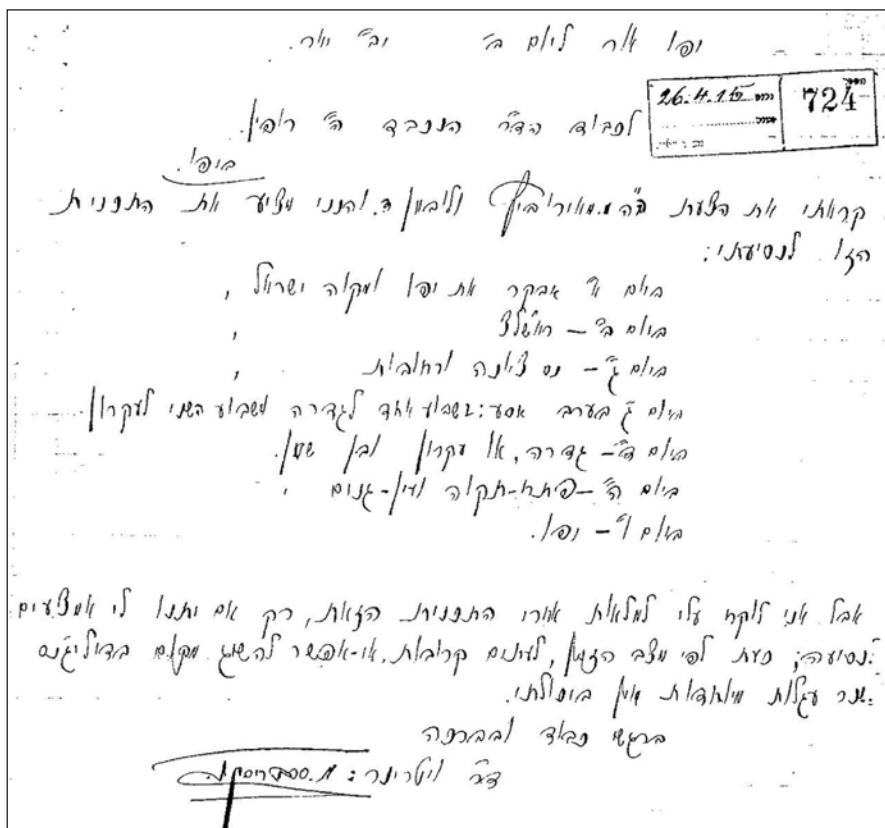 יפו אור ליום ב׳ י״ב אייר.
26.4.15
724
לכבוד הד״ר הנכבד ה׳ רופין
ביפו.
קראתי את הצעת ה״ה מ. מאירוביץ וליבמן ה. והנני מציע את התכנית
הזו לנסיעתי:
ביום א׳ אבקר את יפו ומקוה ישראל,
ביום ב׳ – ראשל״צ,
ביום ג׳ – נס ציונה ורחובות,
ביום ג׳ בערב אסע: בשבוע אחד לגדרה ובשבוע השני לעקרון.
ביום ד׳ – גדרה, או עקרון ובן שמן.
ביום ה׳ – פתח-תקוה ועין-גנים,
ביום ו׳ – יפו.
אבל אני לוקח עלי למלאות אחרי התכנית הזאת, רק אם יתנו לי אמצעים
לנסיעה; כעת לפי מצב הזמן, לעתים קרובות, אי-אפשר להשיג מקום בדיליג׳נס
ושכר עגלות מיוחדות אין ביכולתי.
ברגשי כבוד ובברכה
ד״ר ויטרינר: מ.